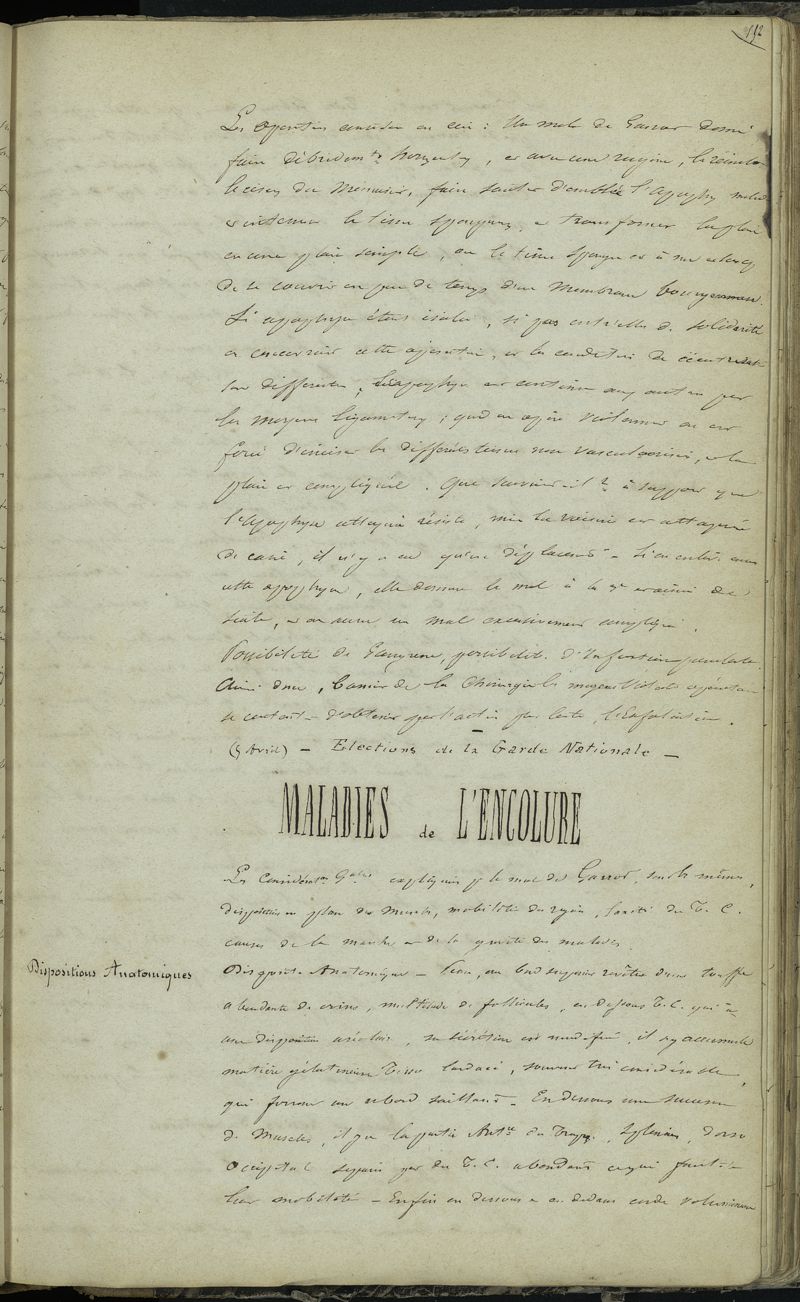 192
Les opérations consistent en ceci : Un mal de Garrot donné
faire débridemts nongeutx, et avec une rugine, le
le ciseau du Menuisier, faire sauter d'emblée l'apophyse malade
le tissu spongieux, et transformer la plaie
en une plaie simple, où le tissu spongieux a
de se couvrir en peu de temps d'une Membrane bourgeonneuse.
Si apophyse étais isolée, si pas entr'elles de solidarité
on concevrait cette opération, et les conditions de
son différentes, l'apophyse est continue aux autres par
les moyens ligamenteux ; quand on opère violemment on est
forcé d'inciser les différents tissus non vasculaires, et la
plaie est compliquée. Que survient-il ? à supposer que
l'apophyse attaquée résiste, mais la voisine est attaquée
de carie, il n'y a eu qu'un déplacement - Si on enlève encore
cette apophyse, elle donnera le mal à la 3e et ainsi de
suite, et on aura un mal excessivement compliqué.
Possibilité de Gangrène, possibilité d'Infection purulente.
Ainsi donc, bannir de la Chirurgie les moyens
se contenter d'obtenir par l'action plus lente, l'Exfoliation.
(9 Avril) - Elections de la Garde Nationale -
MALADIES de L'ENCOLURE
Les Considérons Gales expliquées pr le mal de Garrot, sont les mêmes,
disposition en plan des Muscles, mobilité du rayon, laxité du T. C.
causes de la marche et de la gravité des maladies.
Dispositions Anatomiques
Disposit. Anatomiques - Peau, au bord supérieur revêtue d'une touffe
abondante de crins, multitude de follicules, en dessous T. C. qui a
une disposition aréolaire, sa sécrétion est modifiée, il s'y accumule
matière gélatineuse Tissu lardacé, souvent très considérable,
qui forme un rebord saillant - En dessous une succession
de Muscles, il y a la partie Antre du Trapèze, Splénius, dorso
Occipital séparés par du T. C. abondant ce qui facilite
leur mobilité - Enfin en dessous et en dedans corde volumineuse